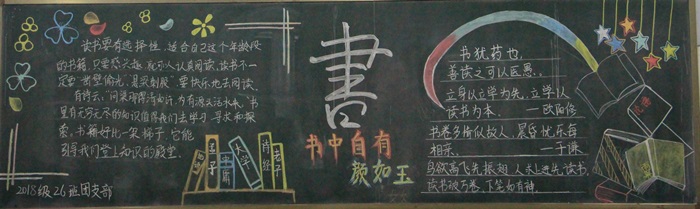 读书要有选择性，适合自己这个年龄段
的书籍，只要感兴趣，就深入认真阅读。读书不一
定要"凿壁偷光，悬梁刺股"要快乐地去阅读。
有诗云："问渠那得清如许，为有源头活水来。"书
里有无穷无尽的知识值得我们去学习、寻求和探
索。书籍好比一架梯子，它能
引导我们登上知识的殿堂。
2018级26班团支部
论语
孟子
中庸
大学
诗经
老子
書
书中自有
颜如玉
书犹药也，
善读之可以医愚。
立身以立学为先，立学以
读书为本。——欧阳修
书卷多情似故人，晨昏忧乐每
相亲。——于谦
鸟欲高飞先振翅，人求上进先读书。
读书破万卷，下笔如有神。